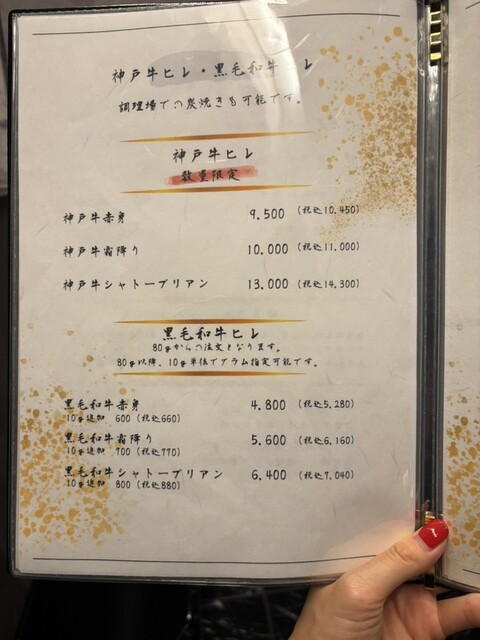 神戸牛ヒレ・黒毛和牛ヒレ
調理場での炭焼きも可能です。
神戸牛ヒレ
数量限定
神戸牛赤身 9.500 (税込10.450)
神戸牛霜降り 10.000 (税込11.000)
神戸牛シャトーブリアン 13.000 (税込14.300)
黒毛和牛ヒレ
80gからの注文となります。
80g以降、10g単位でグラム指定可能です。
黒毛和牛赤身 4.800 (税込5.280)
10g追加 600 (税込660)
黒毛和牛霜降り 5.600 (税込6,160)
10g追加 700 (税込770)
黒毛和牛シャトーブリアン 6.400 (税込7,040)
10g追加 800 (税込880)